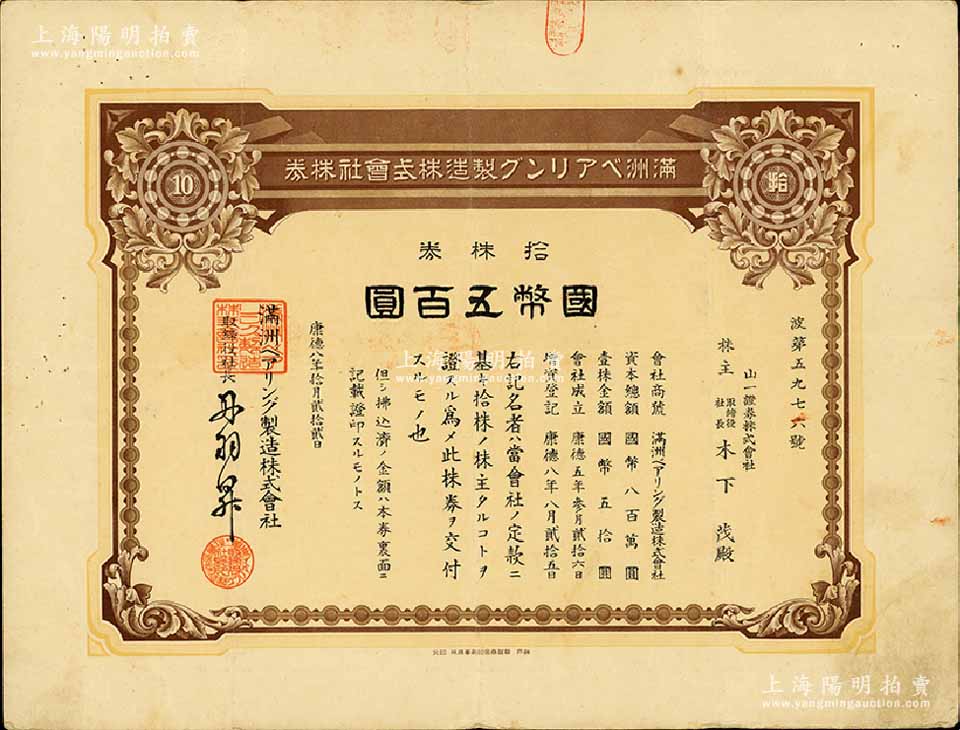 上海陽明拍賣
www.yangmingauction.com
滿洲ベアリング製造株式會社株券
10
拾
拾株券
國幣五百圓
第五九七六號
山一證券株式會社
株主 取締役社長 木下茂殿
會社商號 滿洲ベアリング製造株式會社
資本總額 國幣八百萬圓
壹株金額 國幣五拾圓
會社成立 康德五年參月貳拾六日
增資登記 康德八年八月貳拾五日
右記名者ハ當會社ノ定款ニ
基キ拾株ノ株主タルコトヲ
證スル爲メ此株券ヲ交付
スルモノ也
但シ拂込濟ノ金額ハ本券裏面ニ
記載證印スルモノトス
康德八年拾月貳拾貳日
滿洲ベアリング製造株式會社
取締役社長 丹羽昇
上海陽明拍賣
www.yangmingauction.com